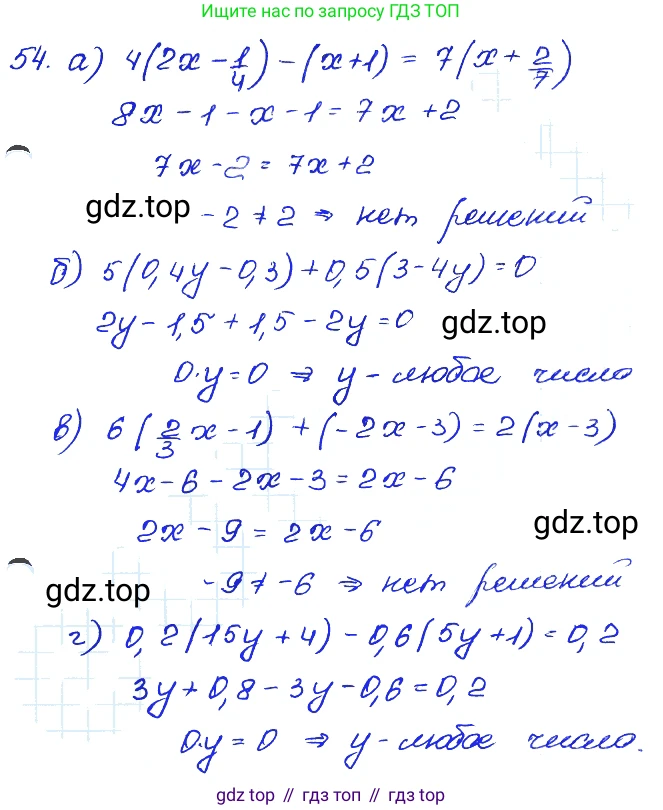 Ищите нас по запросу ГДЗ ТОП
54. а) 4(2x - 1/4) - (x+1) = 7(x + 2/7)
8x - 1 - x - 1 = 7x + 2
7x - 2 = 7x + 2
gdz.top
-2 ≠ 2 ⇒ нет решений
б) 5(0,4y - 0,3) + 0,5(3 - 4y) = 0
2y - 1,5 + 1,5 - 2y = 0
gdz.top
0·y = 0 ⇒ y - любое число
в) 6(2/3 x - 1) + (-2x - 3) = 2(x - 3)
4x - 6 - 2x - 3 = 2x - 6
2x - 9 = 2x - 6
gdz.top
-9 ≠ -6 ⇒ нет решений
gdz.top
г) 0,2(15y + 4) - 0,6(5y + 1) = 0,2
3y + 0,8 - 3y - 0,6 = 0,2
0·y = 0 ⇒ y - любое число.
gdz.top // гдз.top // гдз.top